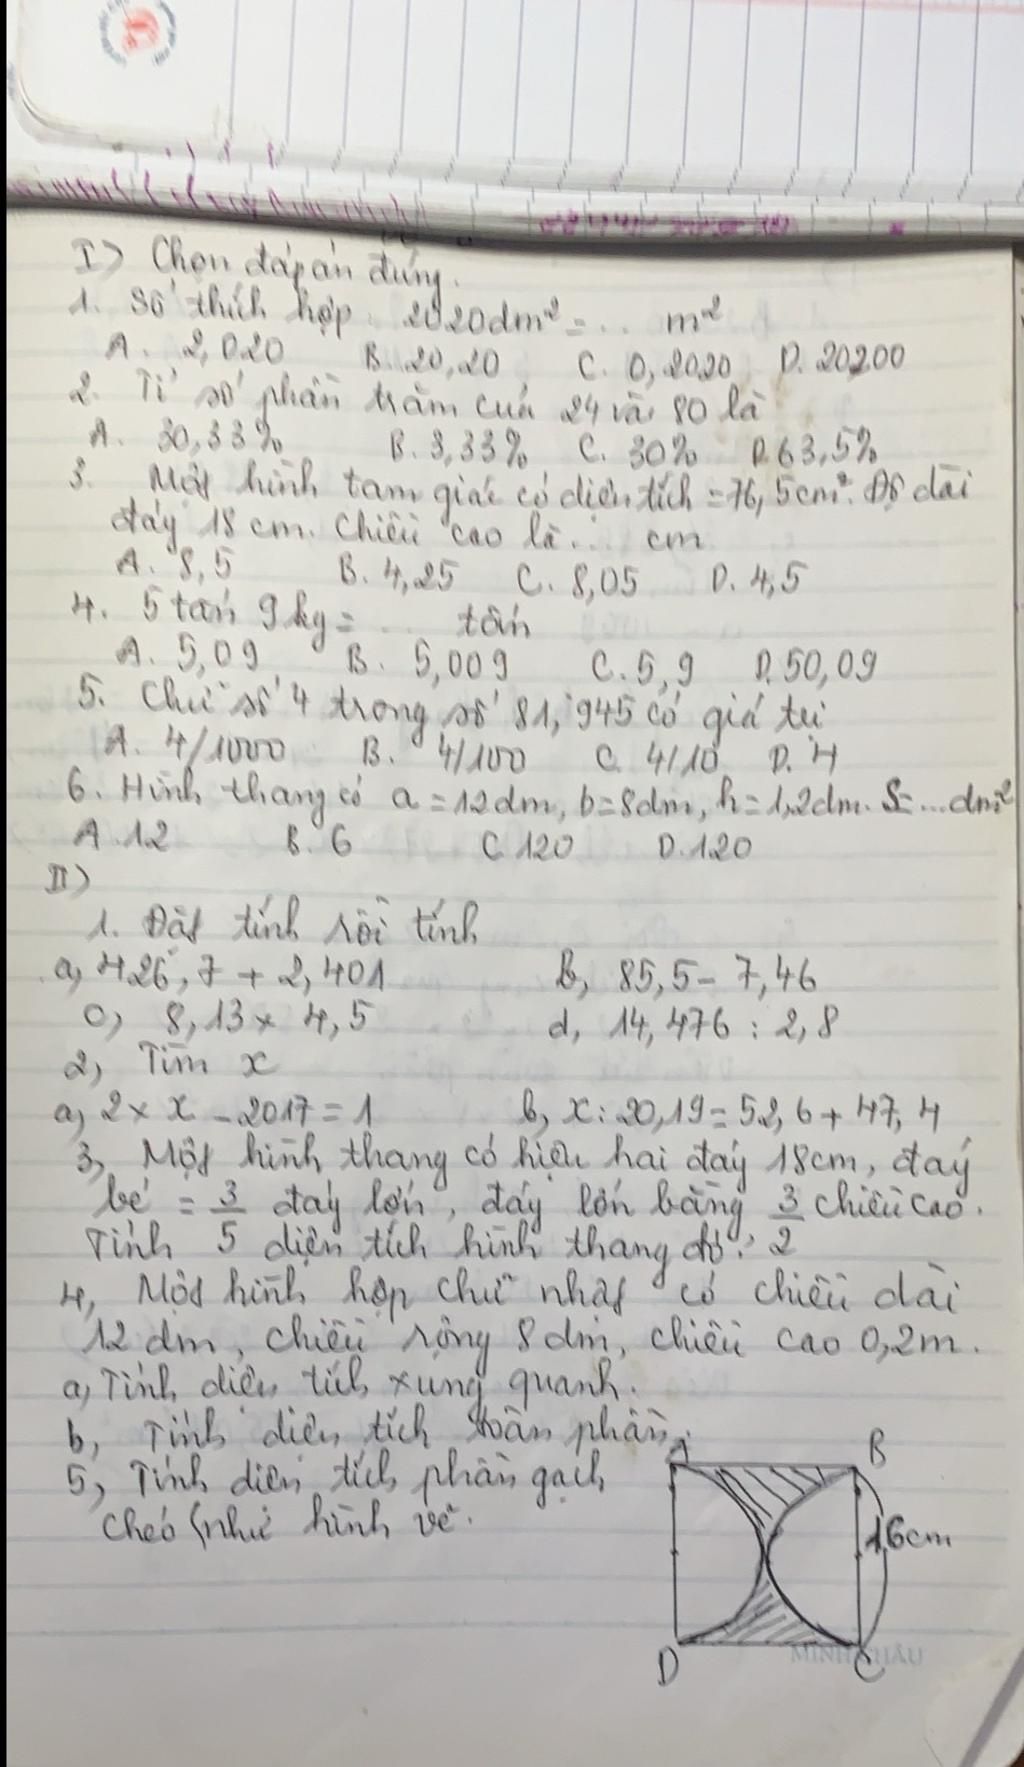 I) Chọn đáp án đúng.
1. Số thích hợp: 2020dm² = ... m²
A. 2,020 B. 20,20 C. 0,2020 D. 20200
2. Tỉ số phần trăm của 24 và 80 là
A. 30,33% B. 3,33% C. 30% D. 63,5%
3. Một hình tam giác có diện tích = 76,5cm². Độ dài
đáy 18 cm. Chiều cao là... cm
A. 8,5 B. 4,25 C. 8,05 D. 4,5
4. 5 tấn 9kg = ... tấn
A. 5,09 B. 5,009 C. 5,9 D. 50,09
5. Chữ số 4 trong số 81,945 có giá trị
A. 4/1000 B. 4/100 C. 4/10 D. 4
6. Hình thang có a = 12dm, b = 8dm, h = 1,2dm. S = ... dm²
A. 12 B. 6 C. 120 D. 120
II)
1. Đặt tính rồi tính
a, 426,7 + 2,401 b, 85,5 - 7,46
c, 8,13 x 4,5 d, 14,476 : 2,8
2, Tìm x
a, 2 x x - 2017 = 1 b, x : 20,19 = 52,6 + 47,4
3, Một hình thang có hiệu hai đáy 18cm, đáy
bé = 3/5 đáy lớn, đáy lớn bằng 3/2 chiều cao.
Tính diện tích hình thang đó?
4, Một hình hộp chữ nhật có chiều dài
12 dm, chiều rộng 8dm, chiều cao 0,2m.
a, Tính diện tích xung quanh.
b, Tính diện tích toàn phần.
5, Tính diện tích phần gạch
chéo (như hình vẽ.
A B
16cm
D C
MINH CHÂU